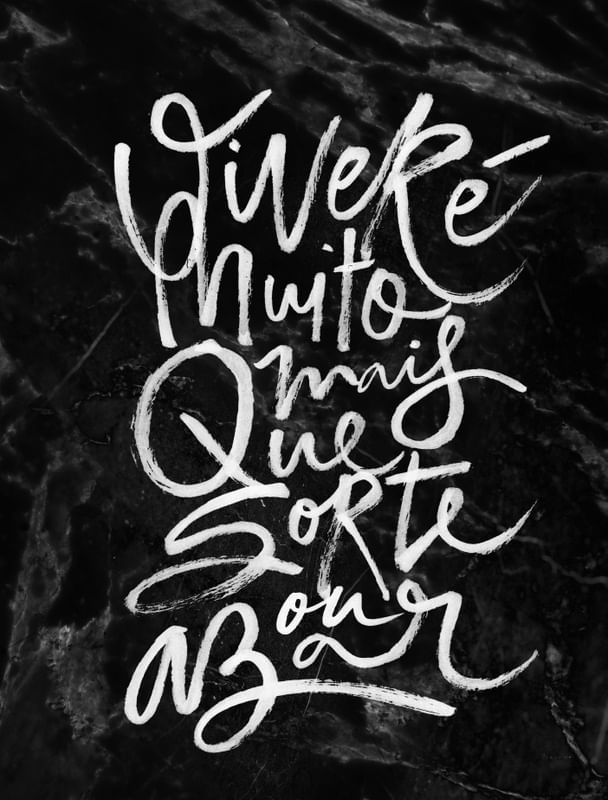 ViveR é
muito
mais
Que
SoRte
ou
aZar